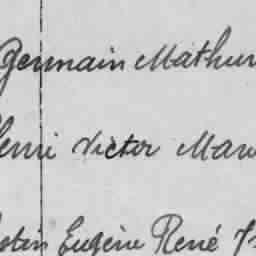 Germain Mathur
Henri Victor Mar
Eugène René